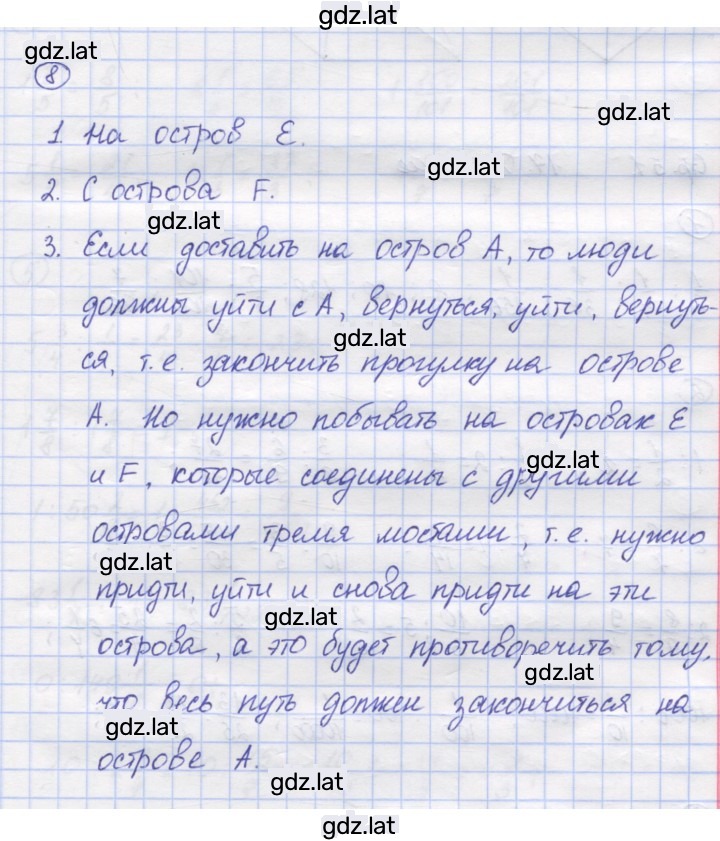 gdz.lat
gdz.lat
8
gdz.lat
1. На остров E.
gdz.lat
2. С острова F.
gdz.lat
3. Если доставить на остров A, то люди
должны уйти с A, вернуться, уйти, вернуть-
gdz.lat
ся, т.е. закончить прогулку на острове
A. Но нужно побывать на островах E
gdz.lat
и F, которые соединены с другими
островами тремя мостами, т.е. нужно
gdz.lat
придти, уйти и снова придти на эти
gdz.lat
острова, а это будет противоречить тому,
gdz.lat
что весь путь должен закончиться на
gdz.lat
острове A.
gdz.lat
gdz.lat